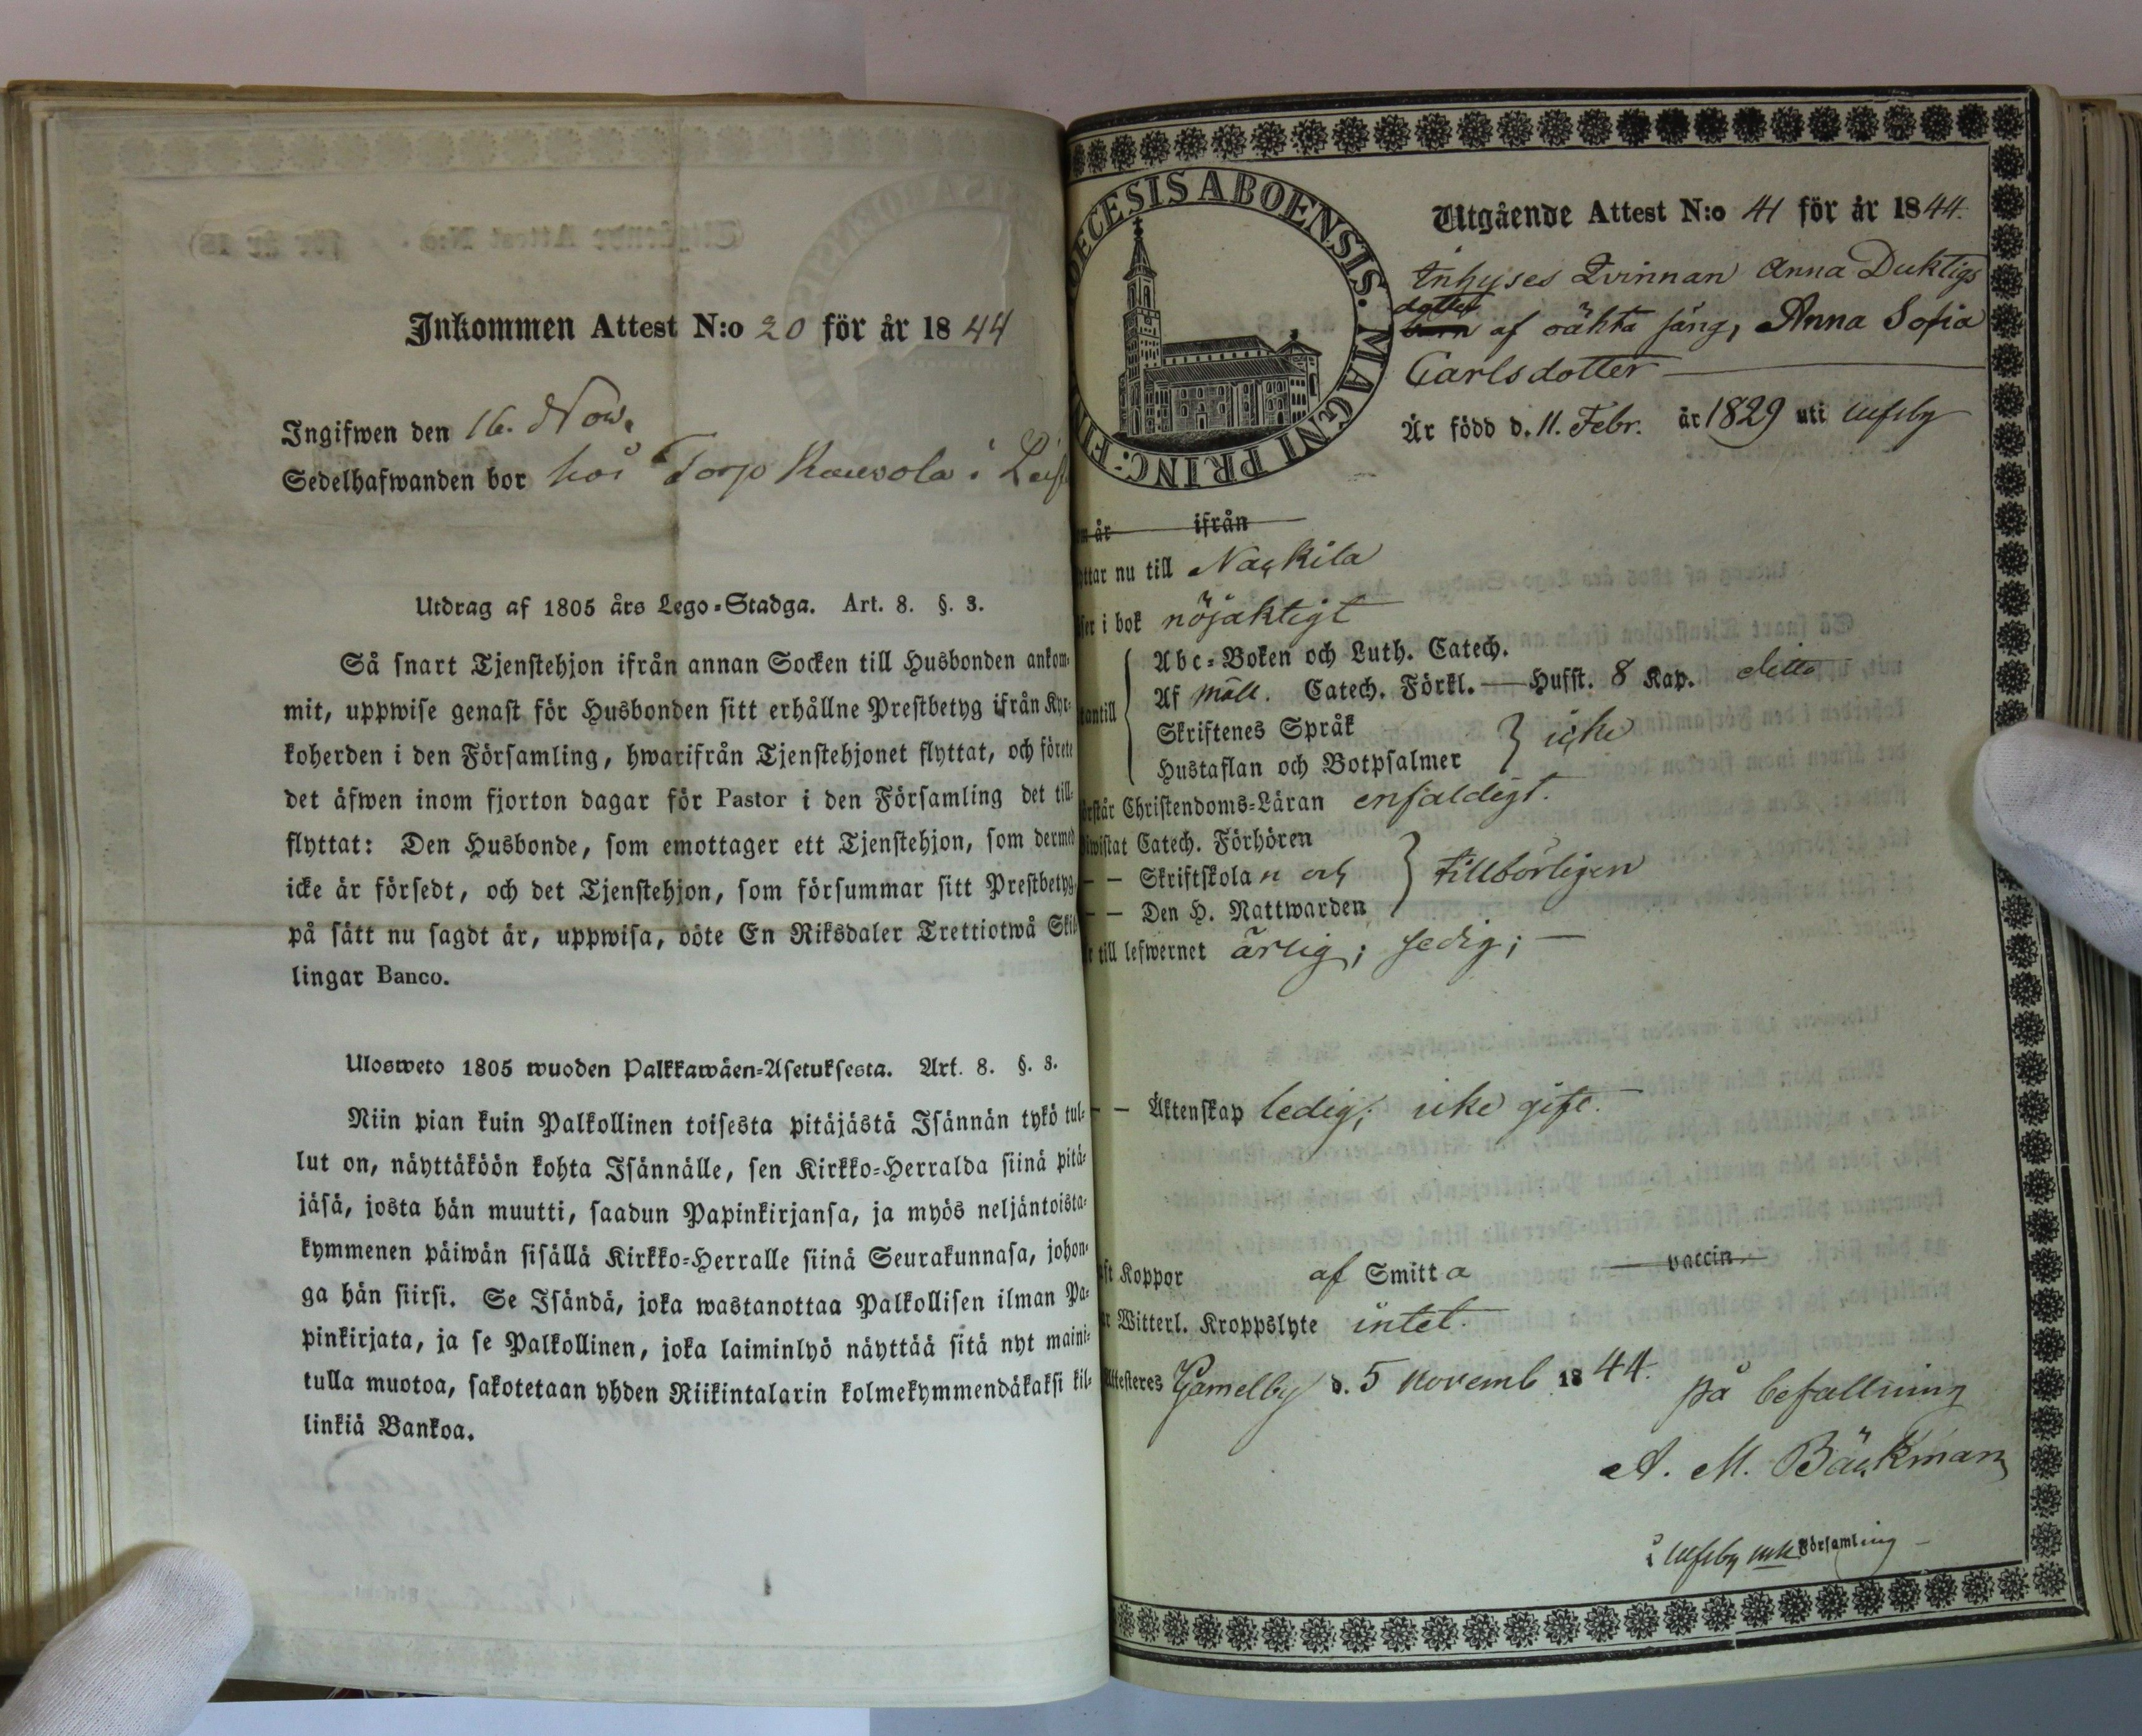 Inkommen Attest N:o 20 för år 1844
Ingifwen den 16. Nov.
Sedelhafwanden bor hos Torp i
Utdrag af 1805 års Lego-Stadga. Art. 8. §. 3.
Så snart Tjenstehjon ifrån annan Socken till Husbonden ankom-
mit, uppwise genast för Husbonden sitt erhållne Prestbetyg ifrån Kyr-
koherden i den Församling, hwarifrån Tjenstehjonet flyttat, och förete
det äfwen inom fjorton dagar för Pastor i den Församling det till-
flyttat: Den Husbonde, som emottager ett Tjenstehjon, som dermed
icke är försedt, och det Tjenstehjon, som försummar sitt Prestbetyg,
på sätt nu sagdt är, uppwisa, böte En Riksdaler Trettiotwå Skil-
lingar Banco.
Ulosweto 1805 wuoden Palkkawäen-Asetuksesta. Art. 8. §. 3.
Niin pian kuin Palkollinen toisesta pitäjästä Isännän tykö tul-
lut on, näyttäköön kohta Isännälle, sen Kirkko-Herralda siinä pitä-
jäsä, josta hän muutti, saadun Papinkirjansa, ja myös neljäntoista-
kymmenen päiwän sisällä Kirkko-Herralle siinä Seurakunnasa, johon-
ga hän siirsi. Se Isändä, joka wastanottaa Palkollisen ilman Pa-
pinkirjata, ja se Palkollinen, joka laiminlyö näyttää sitä nyt maini-
tulla muotoa, sakotetaan yhden Riikintalarin kolmekymmendäkaksi kil-
linkiä Bankoa.
DECESIS ABOENSIS. MAGNI PRINC: FIN
Utgående Attest N:o 41 för år 1844.
Inhyses Qvinnan Anna Duktigs
dotter
barn af oäkta säng, Anna Sofia
Carlsdotter
Är född d. 11. Febr. år 1829 uti Ulfsby
år ifrån
ttar nu till Nackila
ser i bok nöjaktigt
Abc-Boken och Luth. Catech.
antill Af Möll. Catech. Förkl. — Hufst. 8 Kap. ditto
Skriftenes Språk
Hustaflan och Botpsalmer } icke
rstår Christendoms-Läran enfaldigt.
wistat Catech. Förhören
— — Skriftskolan och } tillbörligen
— — Den H. Nattwarden
till lefwernet ärlig; sedig; —
— — Äktenskap ledig; icke gift.
ft Koppor af Smitta vaccin.
r Witterl. Kroppslyte intet.
Attesteres Gamelby d. 5 Novemb 1844.
på befallning
A. M. Bäckman
i Ulfsby Församling